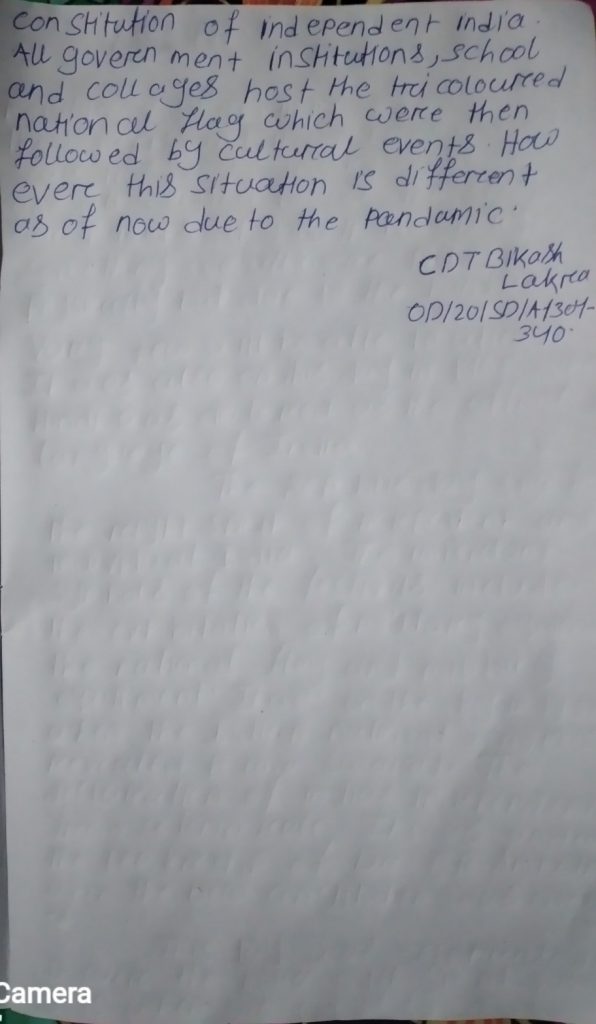 constitution of independent india.
All goverenment institutions, school
and collages host the tricoloured
national flag which were then
followed by cultural events. How
evere this situation is different
as of now due to the pandamic.
CDT Bikash
Lakra
OD/20/SD/A/301-
340.
Camera